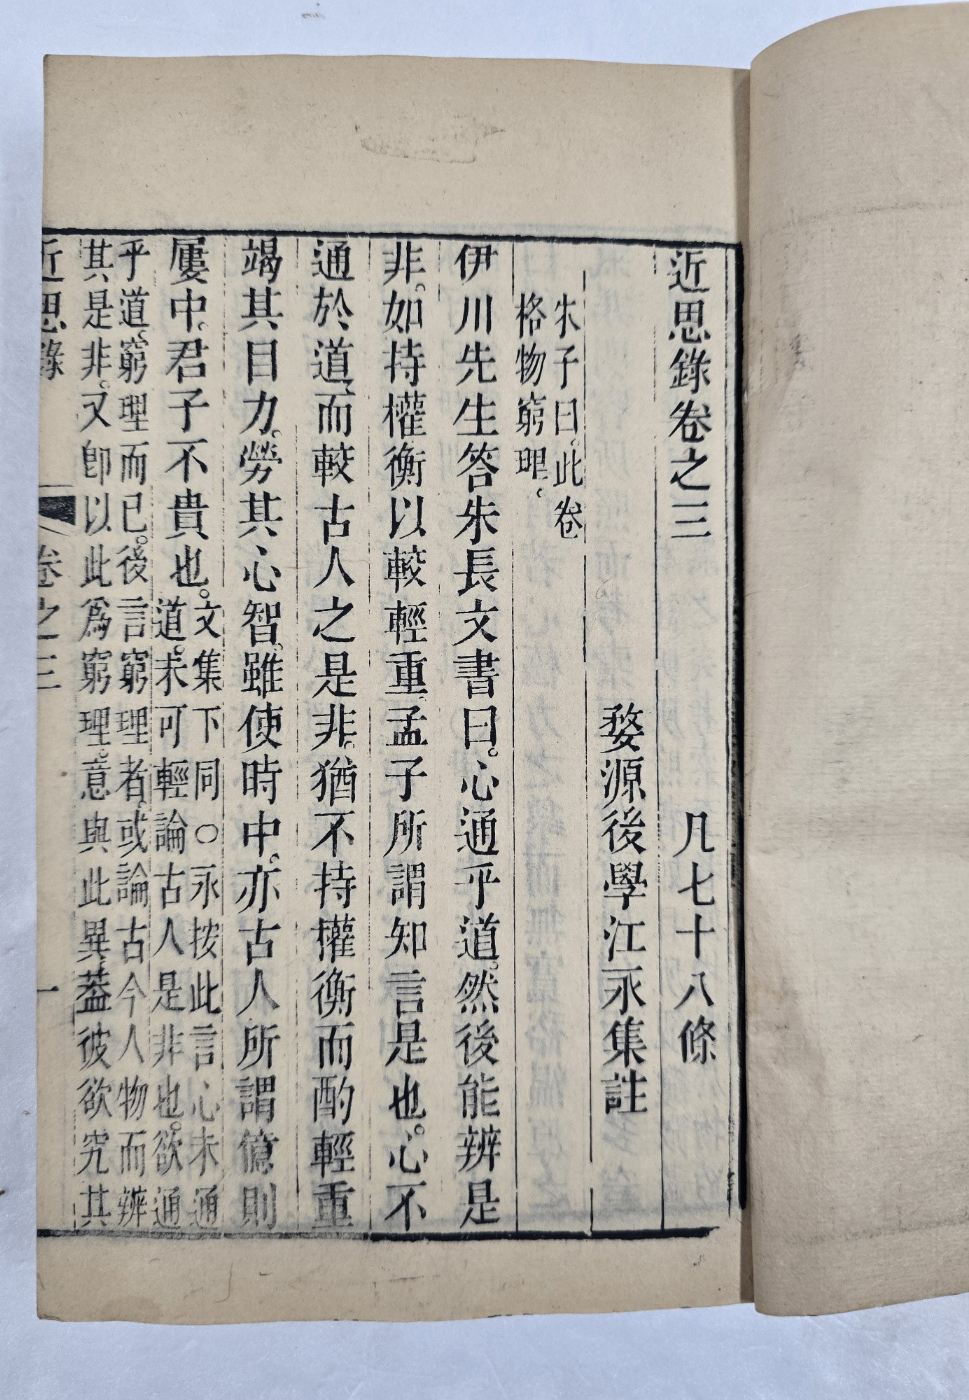 近思錄卷之三　凡七十八條
婺源後學江永集註
朱子曰。此卷
格物窮理。
伊川先生答朱長文書曰。心通乎道。然後能辨是
非。如持權衡以較輕重。孟子所謂知言是也。心不
通於道。而較古人之是非。猶不持權衡而酌輕重
竭其目力。勞其心智。雖使時中。亦古人所謂億則
屢中。君子不貴也。
文集下同○永按此言心未通
道。未可輕論古人是非也。欲通
乎道。窮理而已。後言窮理者。或論古今人物而辨
其是非。又卽以此爲窮理。意與此異。蓋彼欲究其
近思錄　卷之三　一